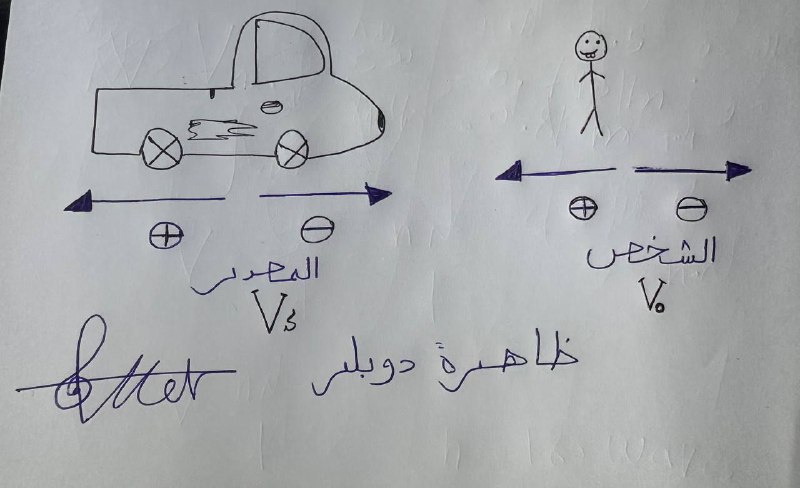 ⊕ ⊖
⊕ ⊖
المصدر
Vs
الشخص
Vo
ظاهرة دوبلر